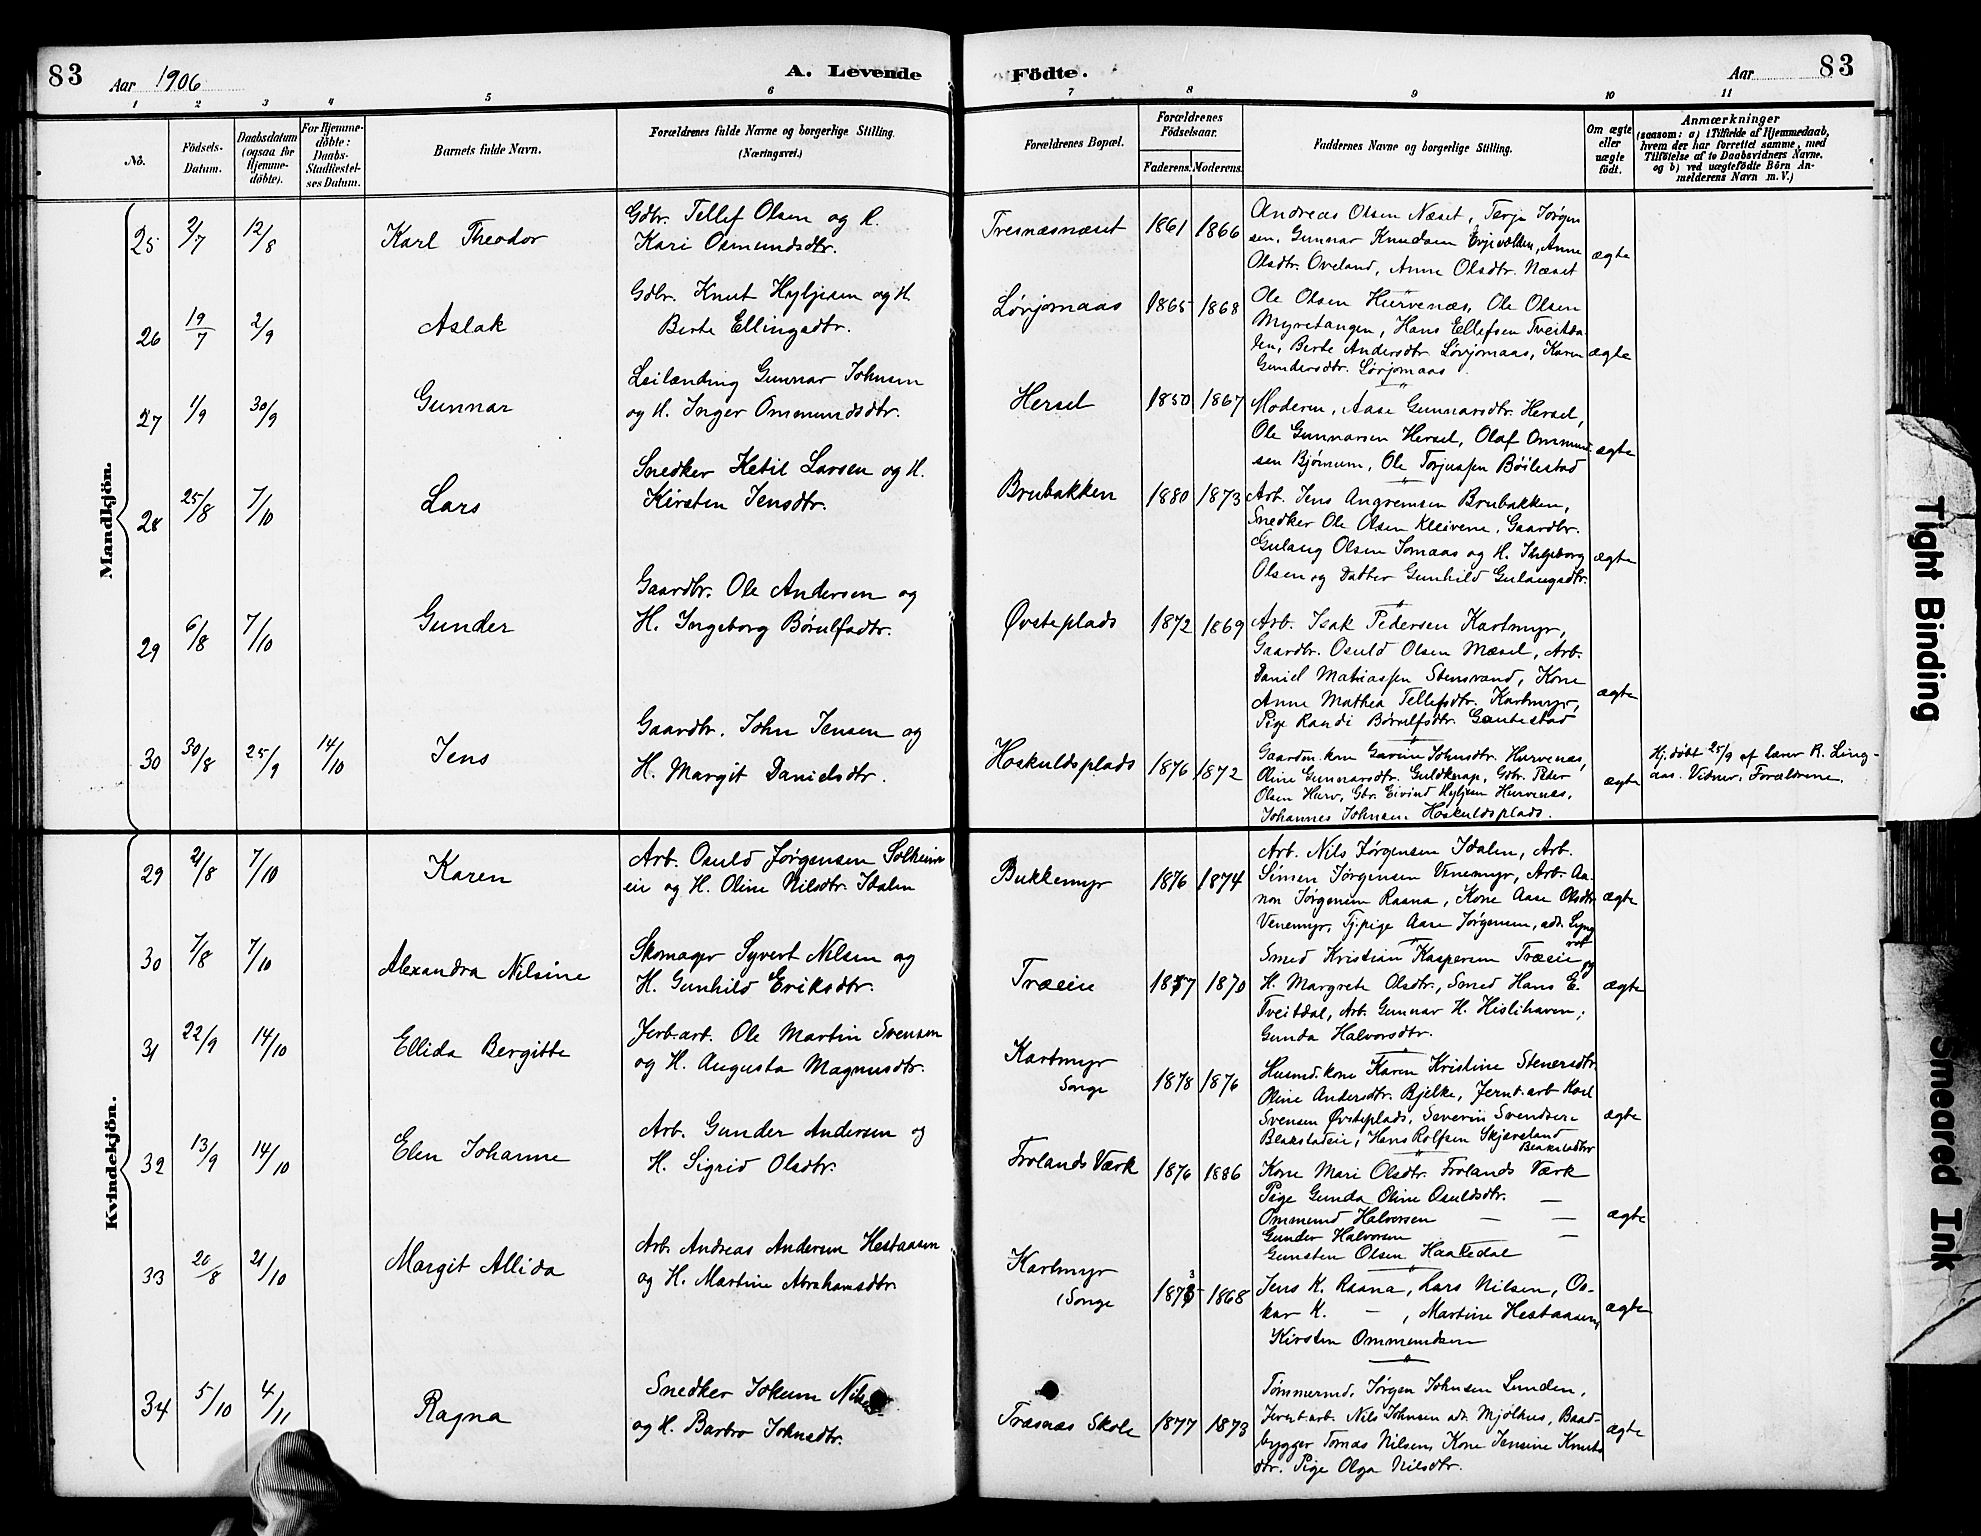 83 Aar 1906 A. Levende Födte. Aar 83
1 2 3 4 5 6 7 8 9 10 11
No.
Födsels-
Datum.
Daabsdatum
(ogsaa for
Hjemme-
döbte).
For Hjemme-
döbte:
Daabs-
Stadfæstel-
ses Datum.
Barnets fulde Navn.
Forældrenes fulde Navne og borgerlige Stilling.
(Næringsvei.)
Forældrenes Bopæl.
Forældrenes
Födselsaar.
Faderens. Moderens.
Faddernes Navne og borgerlige Stilling.
Om ægte
eller
uægte
födt.
Anmærkninger
(saasom: a) i Tilfælde af Hjemmedaab,
hvem der har forrettet samme, med
Tilföielse af to Daabsvidners Navne,
og b) ved uægtefödte Börn An-
melderens Navn m. V.)
Mandkjön.
25 2/7 12/8 Karl Theodor
Gdbr. Tellef Olsen og H.
Kari Osmundsdtr.
Tresnæsnæset 1861 1866
Andreas Olsen Næset, Terje Jørgen
sen, Gunnar Knudsen Evjevolden, Anne
Olsdtr. Oveland, Anne Olsdtr. Næset
ægte
26 19/7 2/9 Aslak
Gdbr. Knut Hyljesen og H.
Berte Ellingsdtr.
Lørjomaas 1865 1868
Ole Olsen Hurvenæs, Ole Olsen
Myretangen, Hans Ellefsen Tveitda-
len, Berte Andersdtr. Lørjomaas, Karen
Gundersdtr. Lørjomaas.
ægte
27 1/9 30/9 Gunnar
Leilænding Gunnar Johnsen
og H. Inger Ommundsdtr.
Hersel 1850 1867
Moderen, Aase Gunnarsdtr. Hersel,
Ole Gunnarsen Hersel, Olaf Ommund
sen Bjørnum, Ole Torjussen Böilestad
ægte
28 25/8 7/10 Lars
Snedker Ketil Larsen og H.
Kirsten Jensdtr.
Brubakken 1880 1873
Arb. Jens Angremsen Brubakken,
Snedker Ole Olsen Kleivene, Gaardbr.
Gulaug Olsen Jomaas og H. Ingeborg
Olsen og Datter Gunhild Gulaugsdtr.
ægte
29 6/8 7/10 Gunder
Gaardbr. Ole Andersen og
H. Ingeborg Børulfsdtr.
Øvsteplads 1872 1869
Arb. Isak Pedersen Kartmyr,
Gaardbr. Osuld Olsen Mæsel, Arb.
Daniel Mathiassen Stensvand, Kone
Anne Mathea Tellefsdtr. Kartmyr,
Pige Randi Børulfsdtr. Gautestad
ægte
30 30/8 25/9 14/10 Jens
Gaardbr. John Jensen og
H. Margit Danielsdtr.
Hoskuldsplads 1876 1872
Gaardm. kone Gurine Johnsdtr. Hurvenæs,
Oline Gunnarsdtr. Guldknap, Gdbr. Peder
Olsen Hurv, Gbr. Eivind Hyljesen Hurvenæs,
Johannes Johnsen Hoskuldsplads.
ægte
Hj. døbt 25/9 af Lærer R. Ling-
aas. Vidner: Forældrene.
Kvindekjön.
29 21/8 7/10 Karen
Arb. Osuld Jørgensen Solheim
eie og H. Oline Nilsdtr. Idalen
Bukkemyr 1876 1874
Arb. Nils Jørgensen Idalen, Arb.
Simen Jørgensen Venemyr, Arb. Aa-
non Jørgensen Raana, Kone Aase Olsdtr.
Venemyr, Tj.pige Aase Jørgensen, ads. Lyng
rot
ægte
30 7/8 7/10 Alexandra Nilsine
Skomager Syvert Nilsen og
H. Gunhild Eriksdtr.
Træeie 1857 1870
Smed Kristian Kaspersen Træeie og
H. Margrete Olsdtr., Smed Hans E.
Tveitdal, Arb. Gunnar H. Hislihaven,
Gunda Halvorsdtr.
ægte
31 22/9 14/10 Ellida Bergitte
Jerb.arb. Ole Martin Svensen
og H. Augusta Magnusdtr.
Kartmyr
Songe
1878 1876
Husmd. kone Karen Kristine Stenersdtr.
Oline Andersdtr. Bjelke, Jernb.arb Karl
Svensen Øvsteplads, Severin Svendsen
Blakstadeie, Hans Rolfsen Skjævsland
Blakstadbro
ægte
32 13/9 14/10 Elen Johanne
Arb. Gunder Andersen og
H. Sigrid Olsdtr.
Frolands Værk 1876 1886
Kone Mari Olsdtr. Frolands Værk
Pige Gunda Oline Osuldsdtr. —
Ommund Halvorsen — —
Gunder Halvorsen — —
Gunsten Olsen Haatedal
ægte
33 20/8 21/10 Margit Allida
Arb. Andreas Andersen Hestaasen
og H. Martine Abrahamsdtr.
Kartmyr
(Songe
1873 1868
Jens K. Raana, Lars Nilsen, Os-
kar K. — , Martine Hestaasen,
Kirsten Ommundsen
ægte
34 5/10 4/11 Ragna
Snedker Jokum Nilsen
og H. Barbro Johnsdtr.
Træsnæs Skole 1877 1873
Tømmermd. Jørgen Johnsen Lunden,
Jernb.arb. Nils Johnsen ads. Mjølhus, Baad-
bygger Tomas Nilsen, Kone Jensine Knuts
dtr. Pige Olga Nilsdtr.
ægte
Tight Binding
Smeared Ink